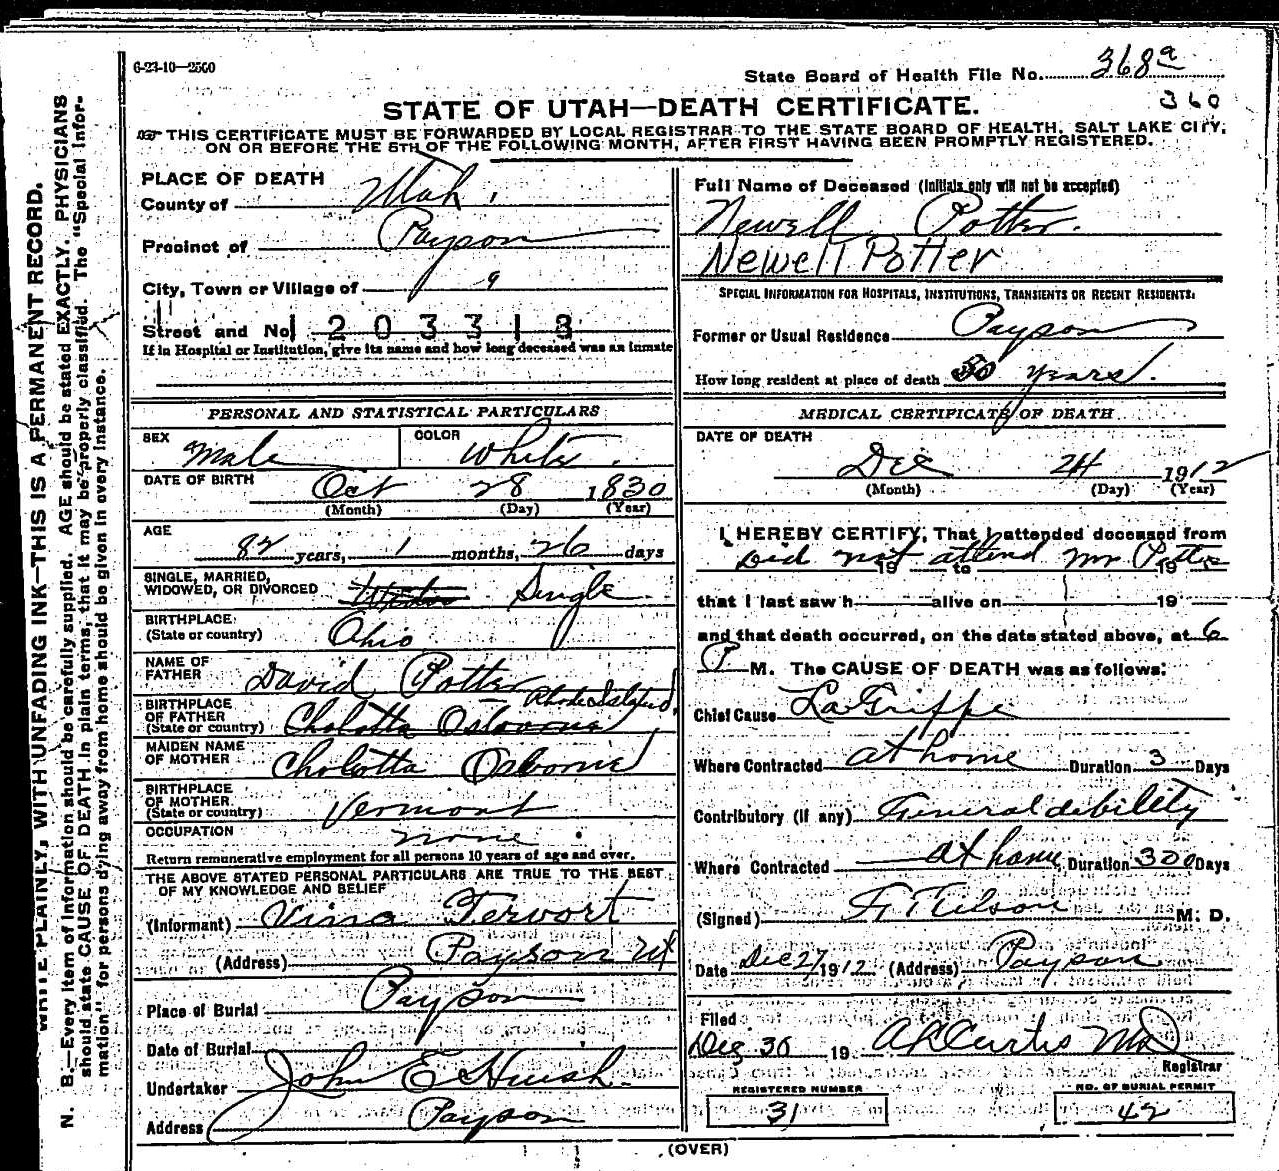 6-23-10—2500
State Board of Health File No. 368a
360
STATE OF UTAH—DEATH CERTIFICATE.
THIS CERTIFICATE MUST BE FORWARDED BY LOCAL REGISTRAR TO THE STATE BOARD OF HEALTH, SALT LAKE CITY,
ON OR BEFORE THE 5TH OF THE FOLLOWING MONTH, AFTER FIRST HAVING BEEN PROMPTLY REGISTERED.
WRITE PLAINLY, WITH UNFADING INK—THIS IS A PERMANENT RECORD.
N. B.—Every item of information should be carefully supplied. AGE should be stated EXACTLY. PHYSICIANS
should state CAUSE OF DEATH in plain terms, that it may be properly classified. The "Special Infor-
mation" for persons dying away from home should be given in every instance.
PLACE OF DEATH
County of Utah
Precinct of Payson
City, Town or Village of
Street and No. 1203313
If in Hospital or Institution, give its name and how long deceased was an inmate
PERSONAL AND STATISTICAL PARTICULARS
SEX Male COLOR White
DATE OF BIRTH Oct 28 1830
(Month) (Day) (Year)
AGE
82 years, 1 months, 26 days
SINGLE, MARRIED,
WIDOWED, OR DIVORCED Single
BIRTHPLACE
(State or country) Ohio
NAME OF
FATHER David Potter
BIRTHPLACE Rhode Island
OF FATHER
(State or country) Cholotta Osborne
MAIDEN NAME
OF MOTHER Cholotta Osborne
BIRTHPLACE
OF MOTHER
(State or country) Vermont
OCCUPATION none
Return remunerative employment for all persons 10 years of age and over.
THE ABOVE STATED PERSONAL PARTICULARS ARE TRUE TO THE BEST
OF MY KNOWLEDGE AND BELIEF
(Informant) Vina Tervort
(Address) Payson Ut
Place of Burial Payson
Date of Burial
Undertaker John E Huish
Address Payson
Full Name of Deceased (Initials only will not be accepted)
Newell Potter.
Newell Potter
SPECIAL INFORMATION FOR HOSPITALS, INSTITUTIONS, TRANSIENTS OR RECENT RESIDENTS.
Former or Usual Residence Payson
How long resident at place of death 50 years.
MEDICAL CERTIFICATE OF DEATH
DATE OF DEATH
Dec 24 1912
(Month) (Day) (Year)
I HEREBY CERTIFY, That I attended deceased from
Did not attend Mr Potter
19 to 19
that I last saw h alive on 19
and that death occurred, on the date stated above, at 6
P M. The CAUSE OF DEATH was as follows:
Chief Cause La Grippe
Where Contracted at home Duration 3 Days
Contributory (if any) General debility
Where Contracted at home Duration 300 Days
(Signed) M. D.
Date Dec 27 1912 (Address) Payson
Filed
Dec 30 19 A L Curtis MD
Registrar
REGISTERED NUMBER
31
NO. OF BURIAL PERMIT
42
(OVER)